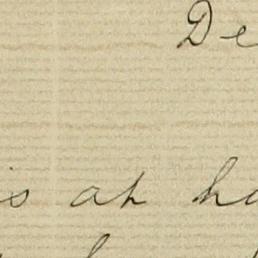 De
is at ha